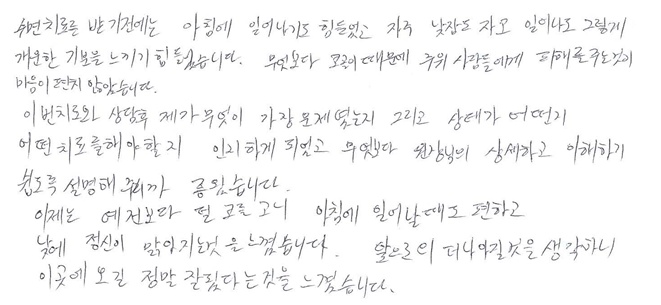 수면치료를 받기전에는 아침에 일어나기도 힘들었고 자주 낮잠도 자고 일어나도 그렇게
개운한 기분을 느끼기 힘들었습니다. 무엇보다 코골이 때문에 주위 사람들에게 피해를 주는것이
마음이 편치 않았습니다.
이번치료와 상담후 제가 무엇이 가장 문제였는지 그리고 상태가 어떤지
어떤 치료를해야할지 인지하게 되었고 무엇보다 원장님의 상세하고 이해하기
쉽도록 설명해 주니까 좋았습니다.
이제는 예전보다 덜 코를 고니 아침에 일어날때도 편하고
낮에 정신이 맑아지는것을 느꼈습니다. 앞으로의 더나아질것을 생각하니
이곳에 오길 정말 잘했다는것을 느꼈습니다.